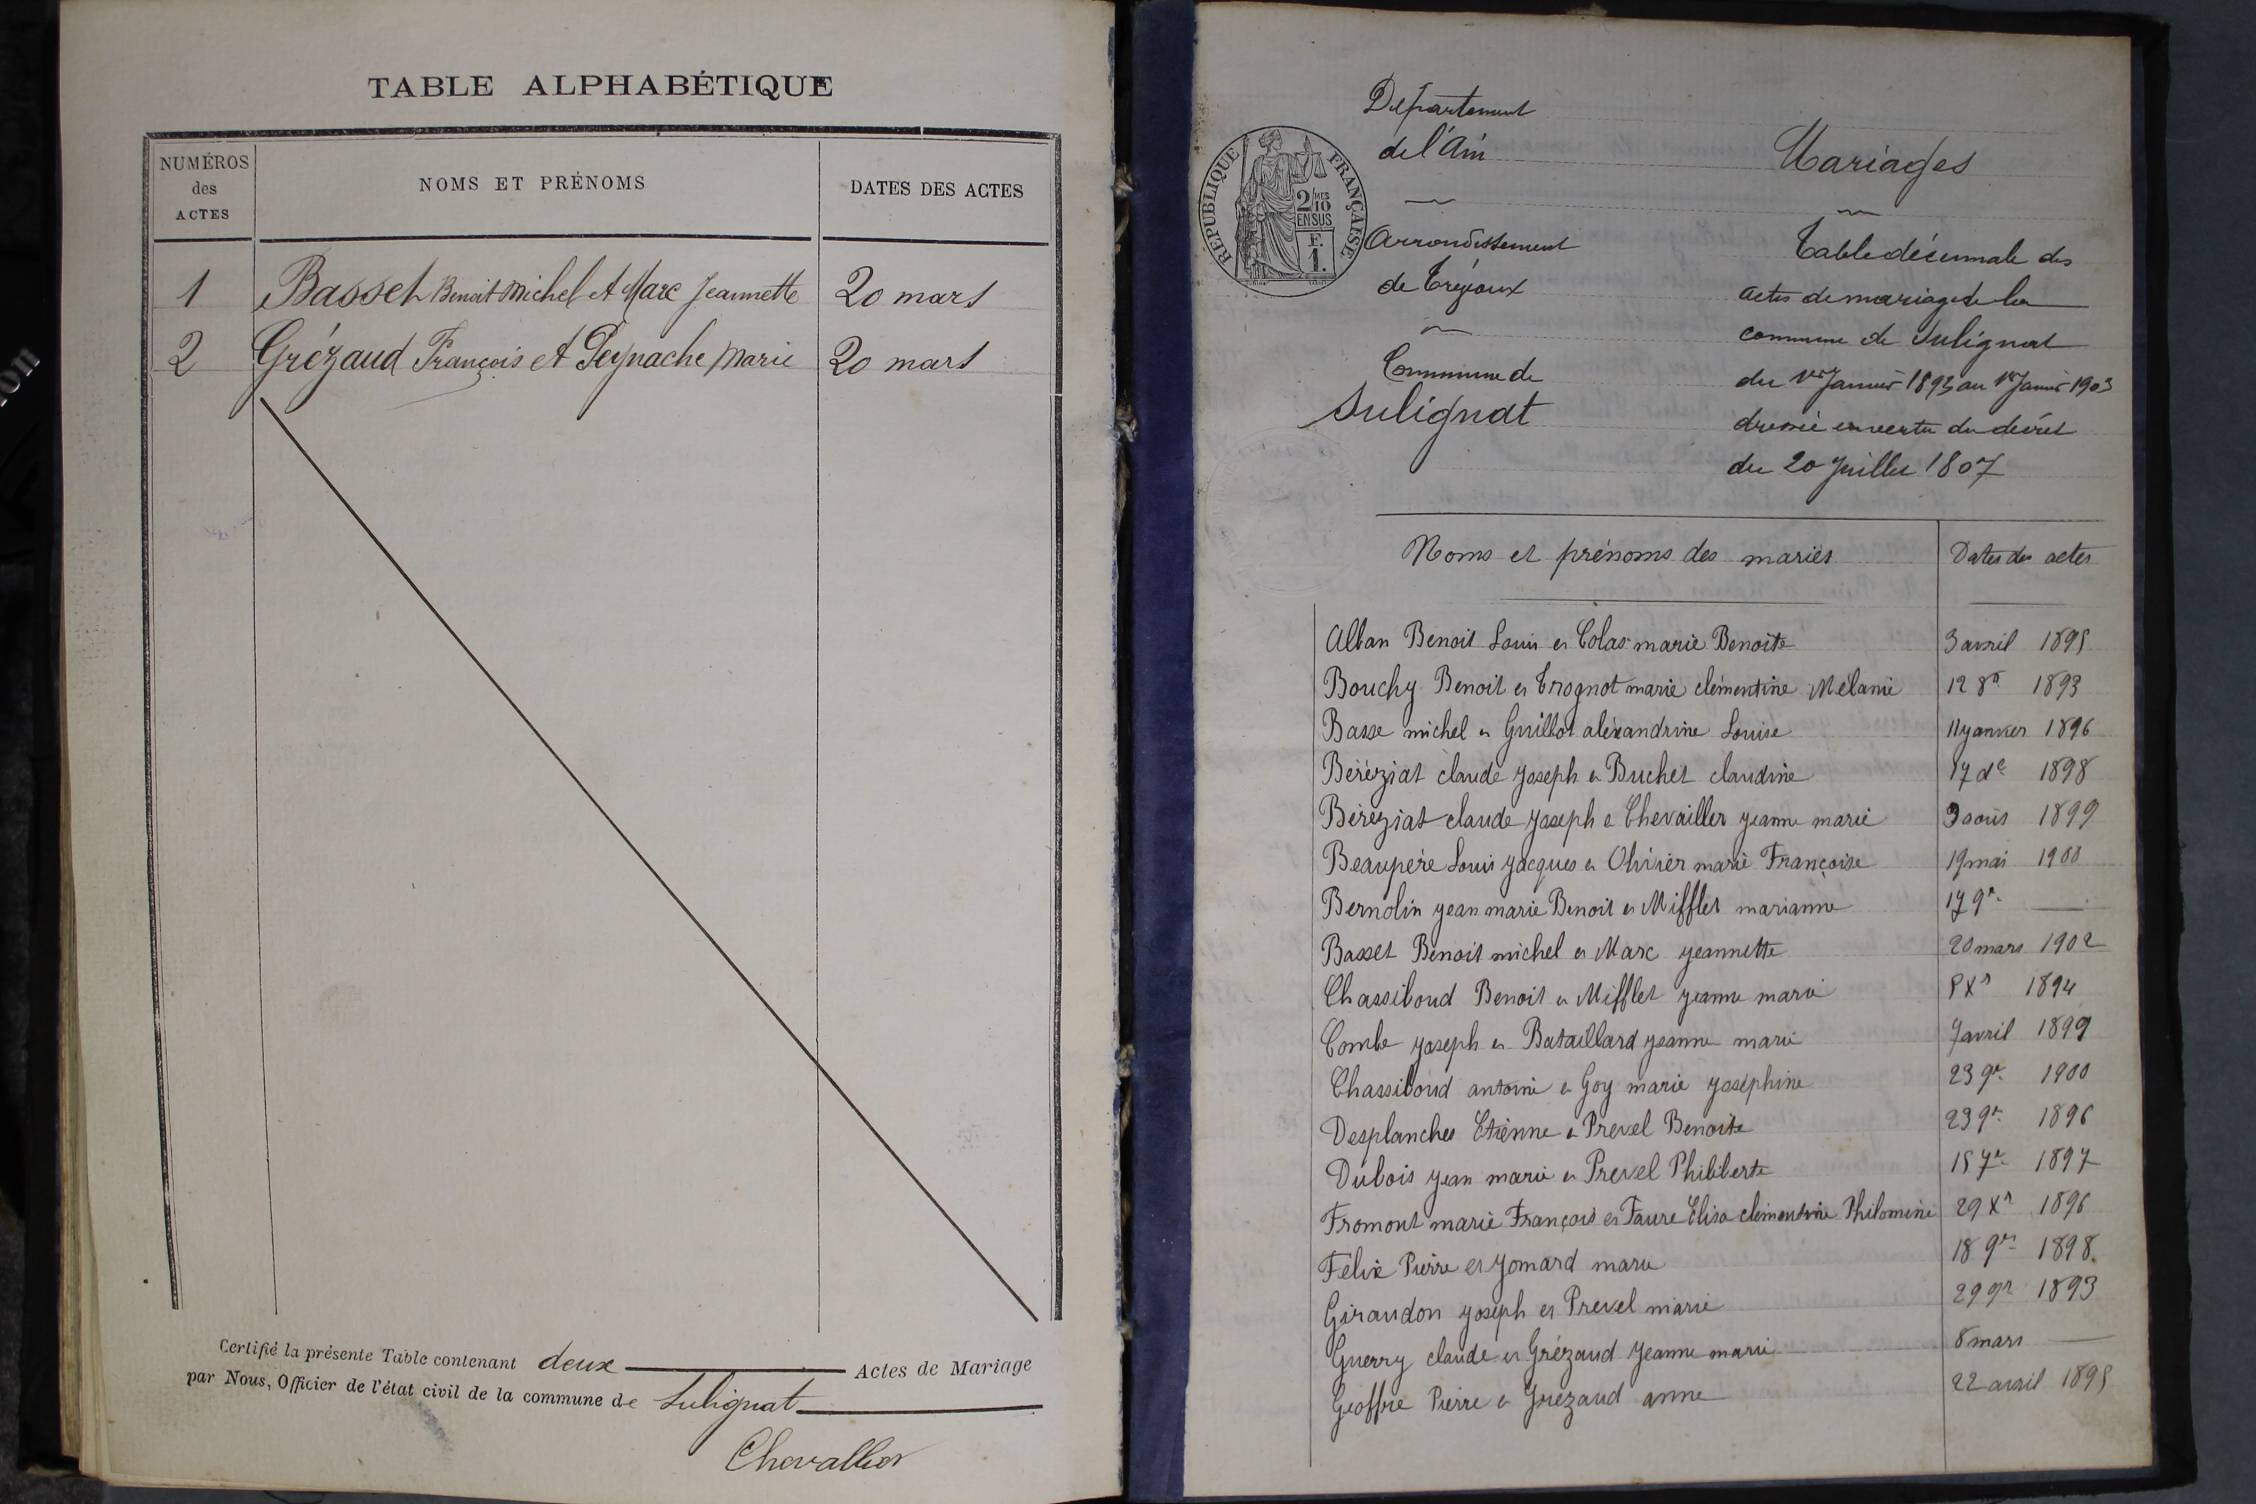 TABLE ALPHABÉTIQUE
NUMÉROS des ACTES
NOMS ET PRÉNOMS
DATES DES ACTES
1 Basset Benoit Michel et Marc Jeannette 20 mars
2 Grézaud François et Peynache Marie 20 mars
Certifié la présente Table contenant deux Actes de Mariage
par Nous, Officier de l'état civil de la commune de Sulignat
Chevallier
Département
de l'Ain
RÉPUBLIQUE FRANÇAISE
2/10 MES
EN SUS
F.
1.
Arrondissement
de Trévoux
Commune de
Sulignat
Mariages
Table décennale des
actes de mariage de la
commune de Sulignat
du 1er Janvier 1893 au 1er Janvier 1903
dressée en vertu du décret
du 20 Juillet 1807
Noms et prénoms des mariés Dates des actes
Alban Benoit Louis et Colas marie Benoite 3 avril 1895
Bouchy Benoit et Trognot marie clémentine Mélanie 12 8bre 1893
Basse michel et Guillot alexandrine Louise 11 janvier 1896
Béréziat claude joseph et Buchet claudine 17 de 1898
Béréziat claude joseph et Chevailler jeanne marie 3 août 1899
Beaupère Louis jacques et Olivier marie Françoise 19 mai 1900
Bernolin jean marie Benoit et Mifflet marianne 17 9r —
Basset Benoit michel et Marc jeannette 20 mars 1902
Chassiboud Benoit et Mifflet jeanne marie 8 Xr 1894
Combe joseph et Bataillard jeanne marie 7 avril 1899
Chassiboud antoine et Goy marie joséphine 23 9r 1900
Desplanches Etienne et Prevel Benoite 23 9r 1896
Dubois jean marie et Prevel Philiberte 15 7r 1897
Fromont marie François et Faure Elisa clémentine Philomine 29 Xr 1896
Félix Pierre et Jomard marie 18 9r 1898
Giraudon joseph et Prevel marie 29 9r 1893
Guerry claude et Grézaud jeanne marie 8 mars —
Geoffre Pierre et Grézaud anne 22 avril 1895